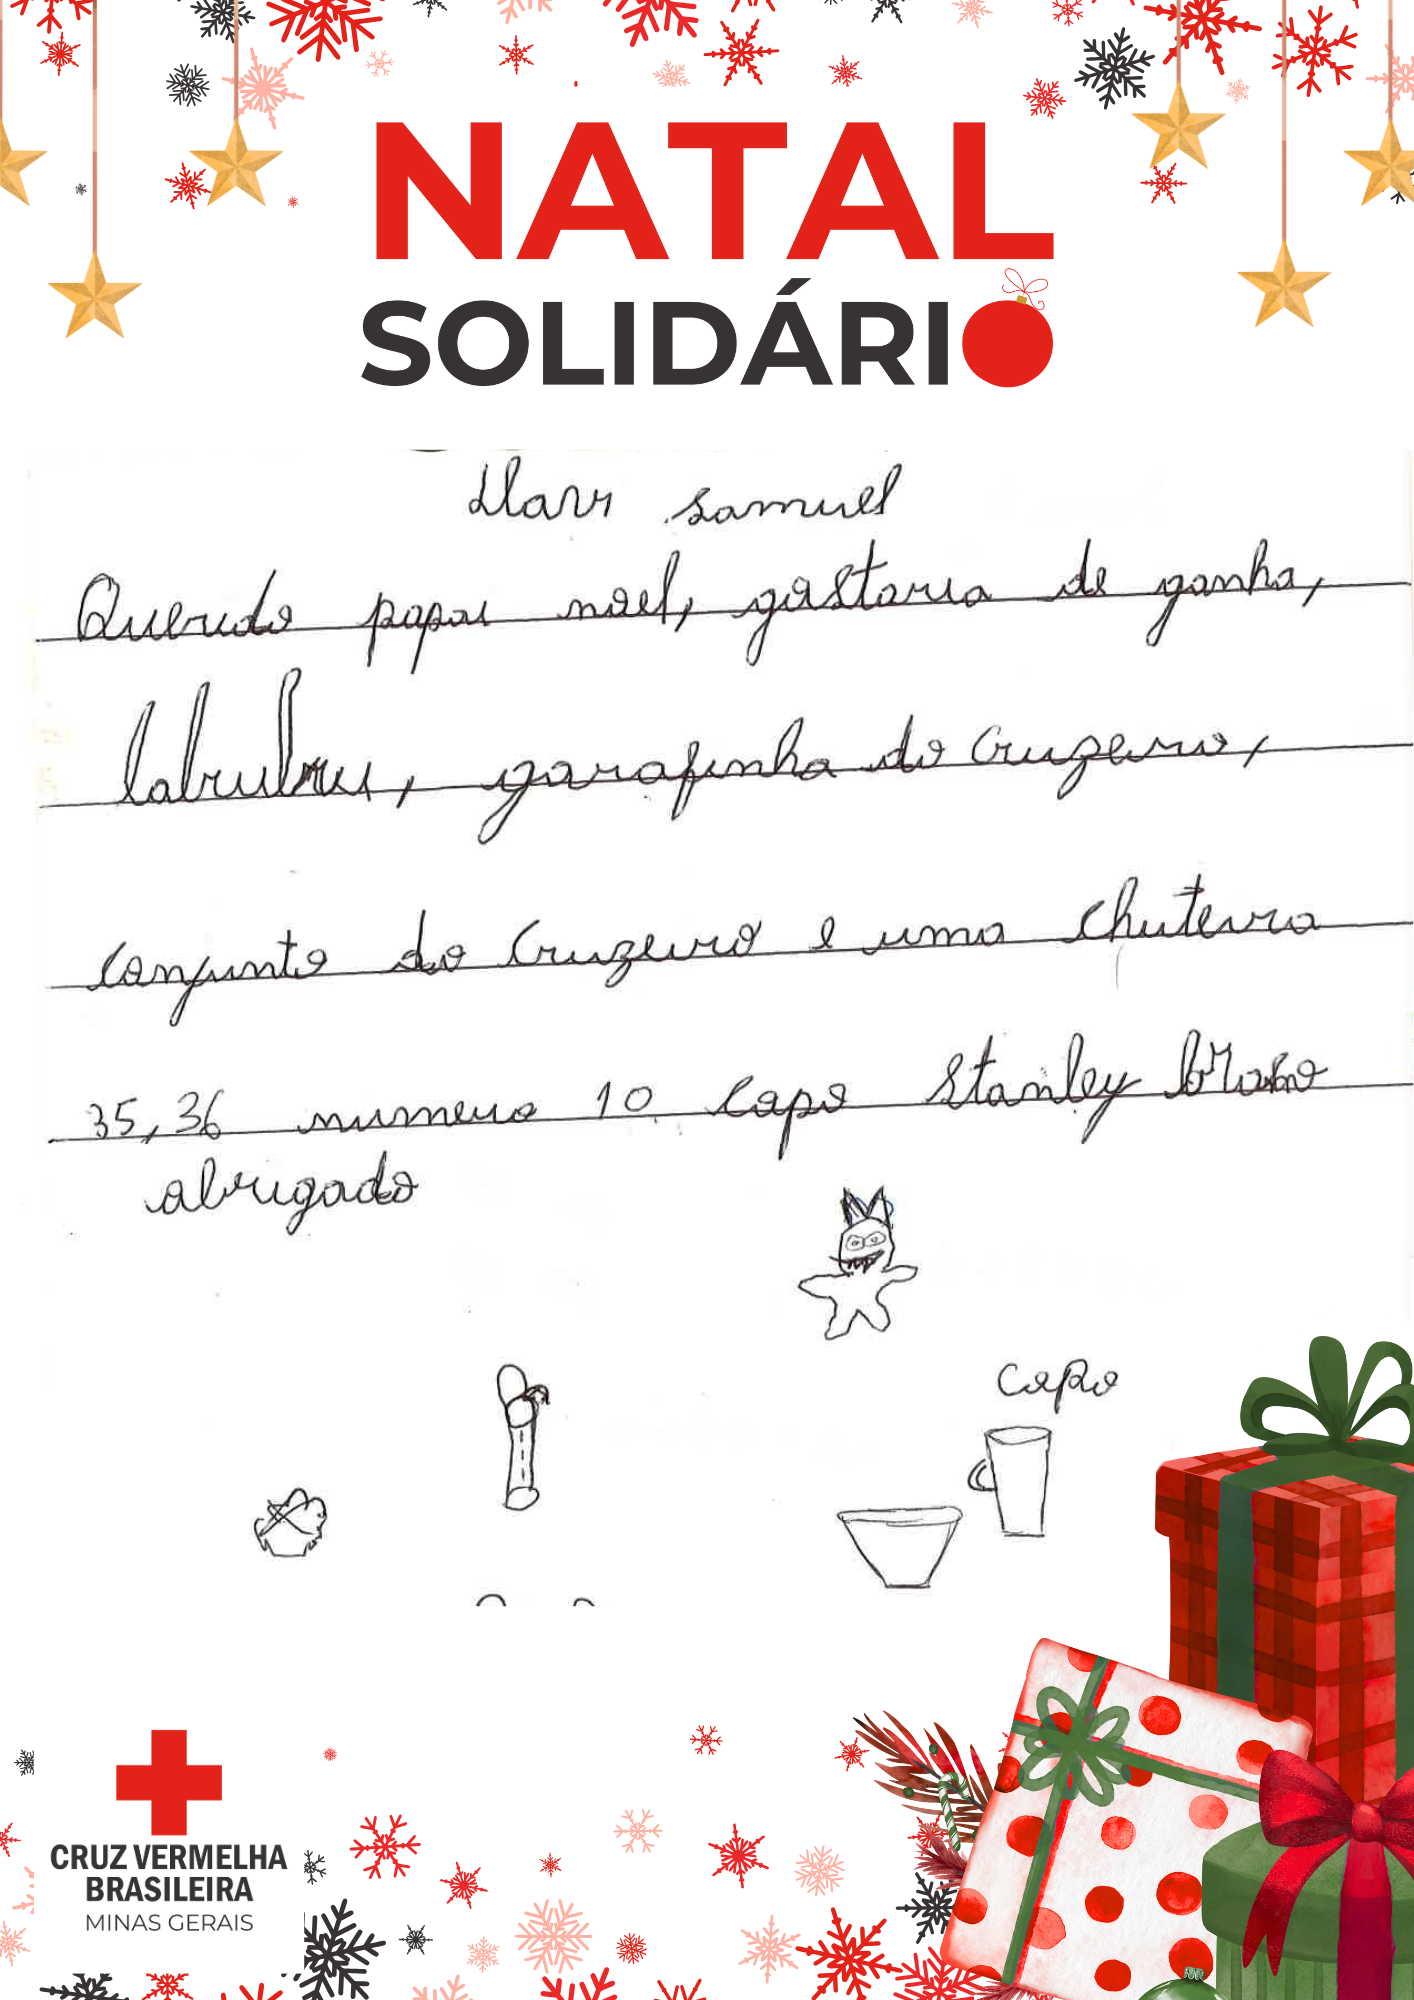 NATAL
SOLIDÁRIO
samuel
Querido papai noel, gostaria de ganha,
labubu, garafinha do Cruzeiro,
conjunto do Cruzeiro e uma chuteira
35,36 numero 10 capo Stanley
abrigado
copo
CRUZ VERMELHA
BRASILEIRA
MINAS GERAIS